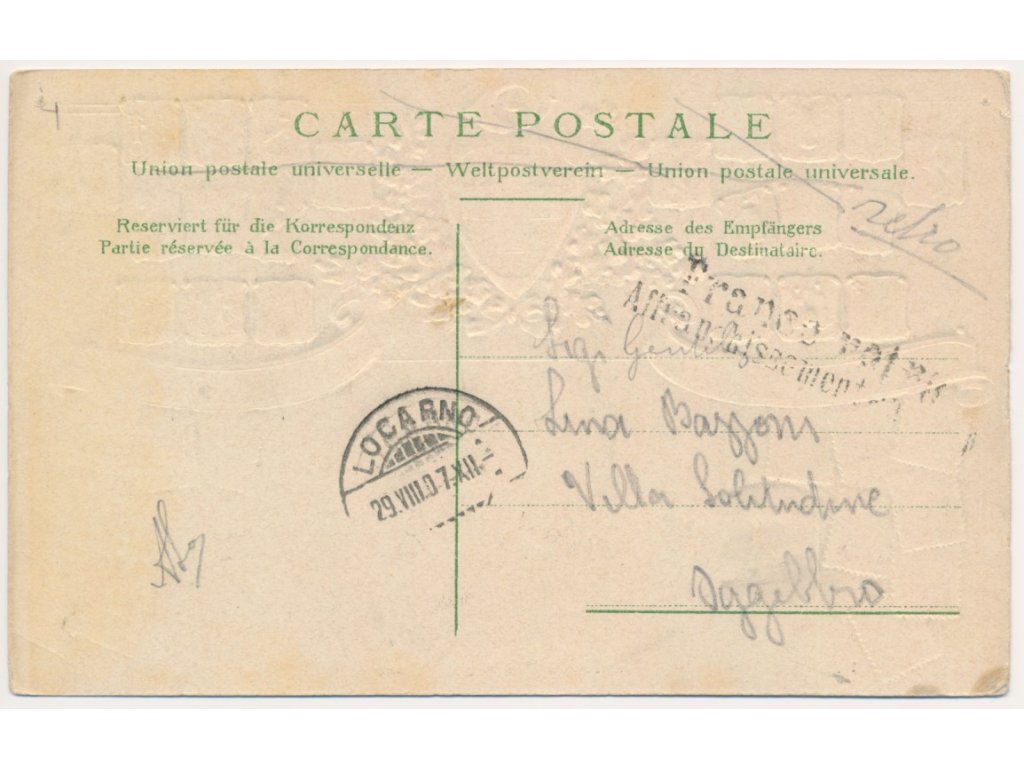 4
CARTE POSTALE
Union postale universelle — Weltpostverein — Union postale universale.
Reserviert für die Korrespondenz
Partie réservée à la Correspondance.
Adresse des Empfängers
Adresse du Destinataire.
retro
Franco
Affranchissement
Sig. Gentil
Lina Bazzoni
Villa Solitudine
Oggebbio
LOCARNO
29.VIII.07.XII.